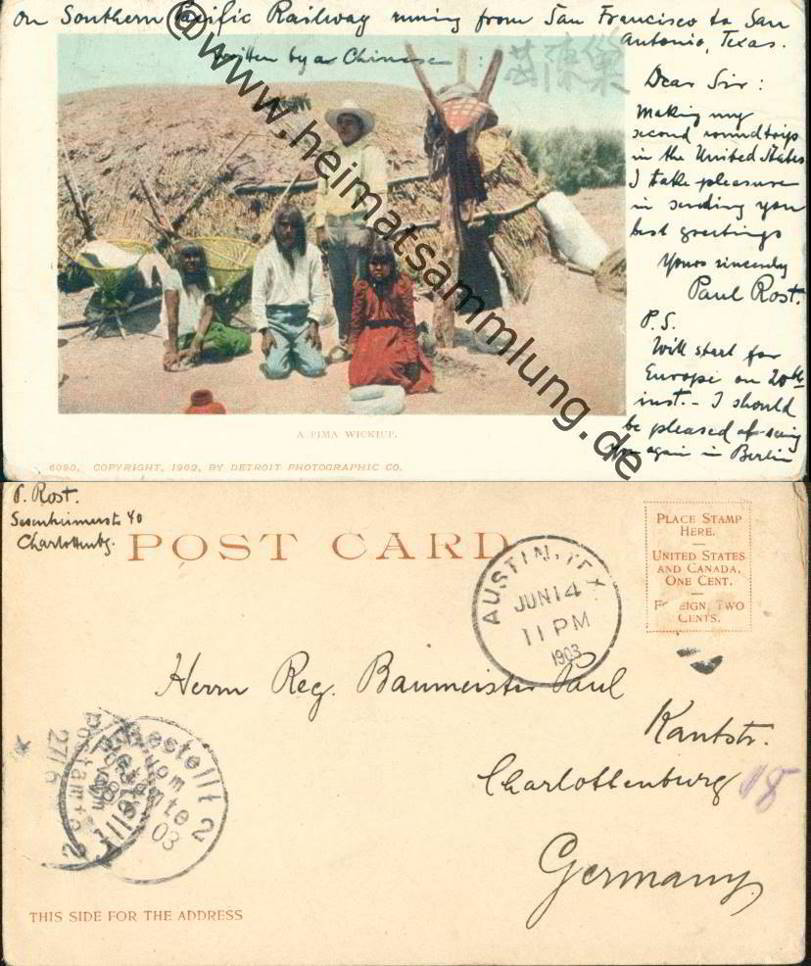 on Southern Pacific Railway runing from San Francisco to San
Antonio, Texas.
written by a Chinese :
Dear Sir :
Making my
second roundtrip
in the United States
I take pleasure
in sending you
best greetings
Yours sincerely
Paul Rost.
P.S.
Will start for
Europe on 20th
inst. - I should
be pleased of seing
you again in Berlin
@www.heimatsammlung.de
A PIMA WICKIUP.
6090. COPYRIGHT, 1902, BY DETROIT PHOTOGRAPHIC CO.
P. Rost.
Sesenheimerstr 40
Charlottenbg.
POST CARD
PLACE STAMP
HERE.
UNITED STATES
AND CANADA,
ONE CENT.
FOREIGN, TWO
CENTS.
AUSTIN, TEX.
JUN 14
11 PM
1903
Herrn Reg. Baumeister Paul
Kantstr.
Charlottenburg
18
Germany
Bestellt
vom
Postamte 2
27/6
03
THIS SIDE FOR THE ADDRESS